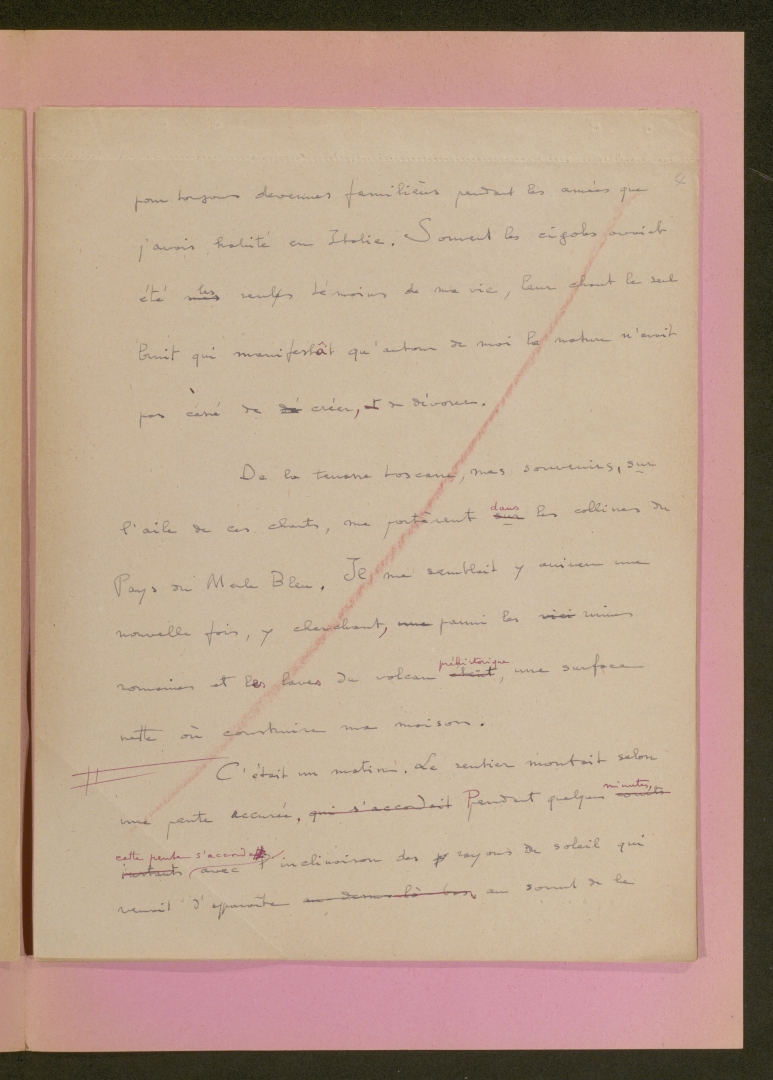 4
pour toujours devenues familières pendant les années que
j'avais habité en Italie. Souvent les cigales avaient
été mes les seules témoins de ma vie, leur chant le seul
bruit qui manifestât qu'autour de moi la nature n'avait
pas cessé de dé créer, et de dévorer.
De la terrasse toscane, mes souvenirs, sur
l'aile de ces chants, me portèrent sur dans les collines du
Pays du Merle Bleu. Il me semblait y arriver une
nouvelle fois, y cherchant, une parmi les ruines
romaines et les laves du volcan éteint préhistorique, une surface
nette où construire ma maison.
C'était un matin. Le sentier montait selon
une pente accusée, qui s'accordait Pendant quelques minutes,
instants cette pente s'accorda avec l'inclinaison des rayons de soleil qui
venait d'apparaître au-dessus là-bas, au sommet de la